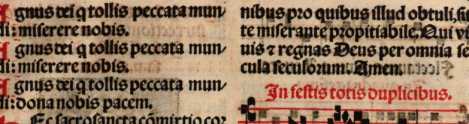 Agnus dei q tollis peccata mun/
di: miserere nobis.
Agnus dei q tollis peccata mun/
di: miserere nobis.
Agnus dei q tollis peccata mun/
di: dona nobis pacem.
Ec sacrosancta cõmixtio cor
nibus pro quibus illud obtuli, sit
te miserante propitiabile. Qui vi
uis et regnas Deus per omnia se
cula seculorum. Amen.
In festis totis duplicibus.